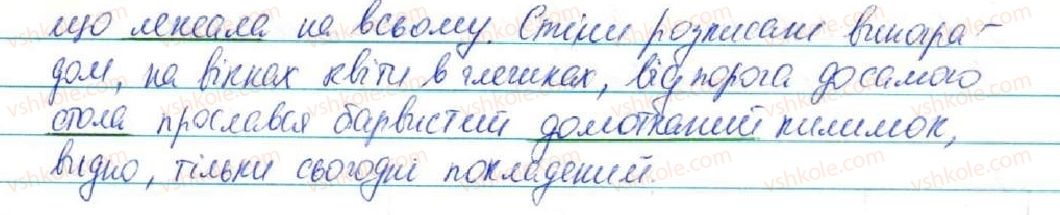 що лежала на всьому. Стіни розписані виногра-
дом, на вікнах квіти в глечиках, від порога до самого
стола прослався барвистий домотканий килимок,
видно, тільки сьогодні покладений.